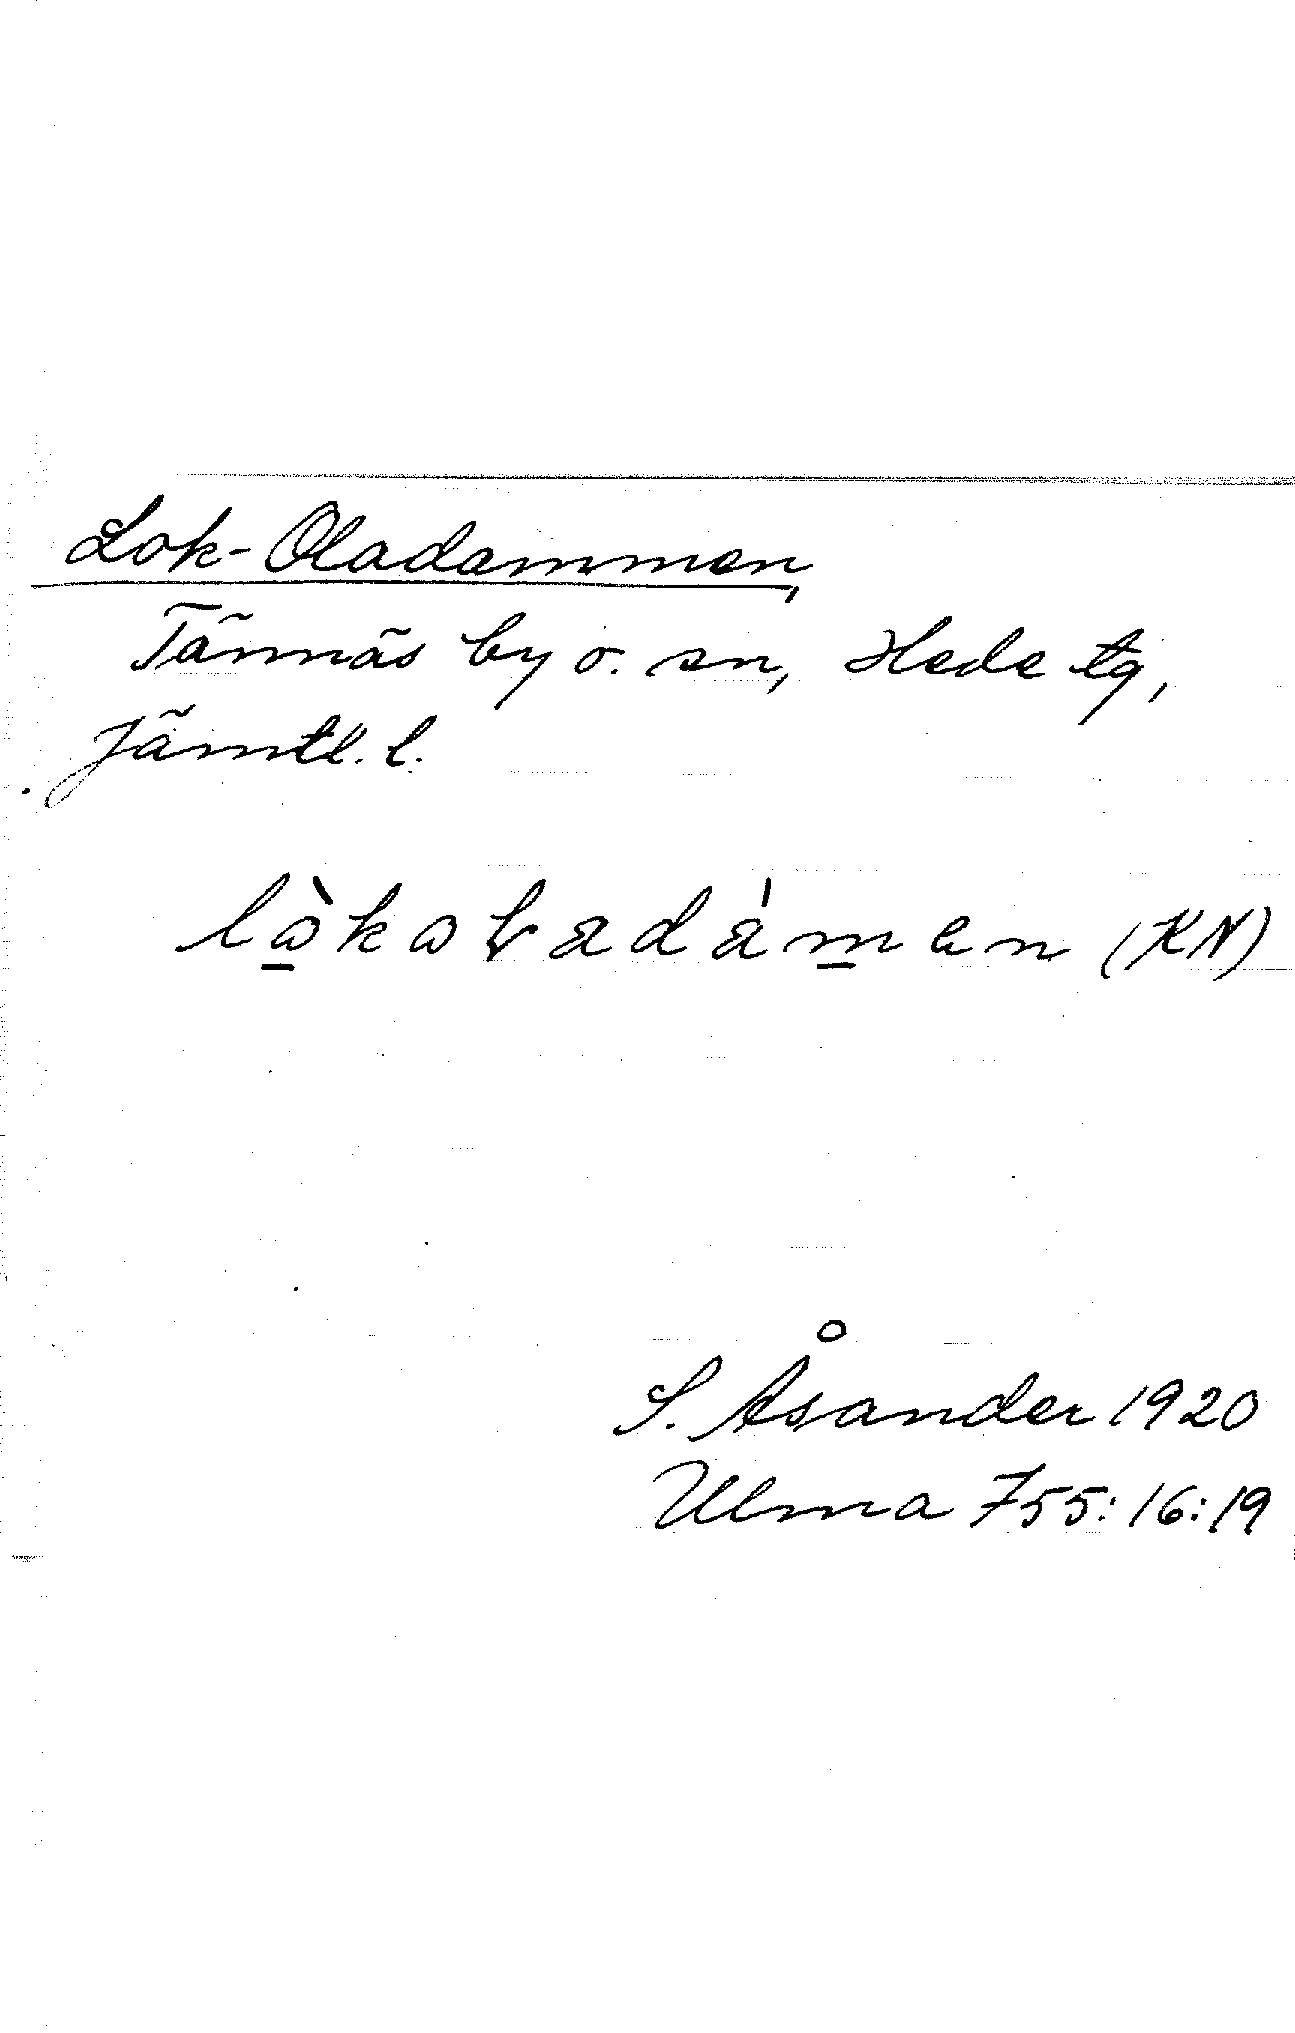 Lok-Oladammen,
Tännäs by o. sn, Hede tg,
Jämtl. l.
lò̱koladám̱en (KN)
S. Åsander 1920
Ulma 755:16:19